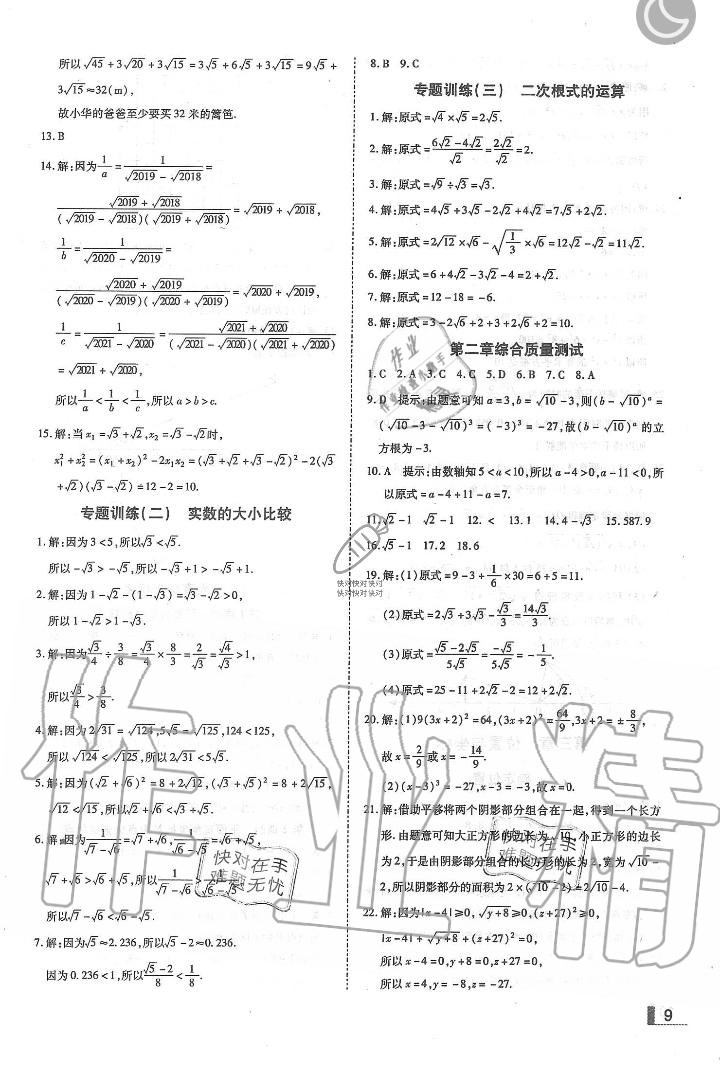 所以√45+3√20+3√15=3√5+6√5+3√15=9√5+
3√15≈32(m),
故小华的爸爸至少要买32米的篱笆.
13.B
14.解:因为1/a=1/(√2019-√2018)=
(√2019+√2018)/((√2019-√2018)(√2019+√2018))=√2019+√2018,
1/b=1/(√2020-√2019)=
(√2020+√2019)/((√2020-√2019)(√2020+√2019))=√2020+√2019,
1/c=1/(√2021-√2020)=(√2021+√2020)/((√2021-√2020)(√2021+√2020))
=√2021+√2020,
所以1/a<1/b<1/c,所以a>b>c.
15.解:当x₁=√3+√2,x₂=√3-√2时,
x₁²+x₂²=(x₁+x₂)²-2x₁x₂=(√3+√2+√3-√2)²-2(√3
+√2)(√3-√2)=12-2=10.
专题训练(二) 实数的大小比较
1.解:因为3<5,所以√3<√5.
所以-√3>-√5,所以-√3+1>-√5+1.
2.解:因为1-√2-(1-√3)=√3-√2>0,
所以1-√2>1-√3.
3.解:因为√3/4÷3/8=√3/4×8/3=2/√3=√4/√3>1,
所以√3/4>3/8.
4.解:因为2√31=√124,5√5=√125,124<125,
所以√124<√125,所以2√31<5√5.
5.解:因为(√2+√6)²=8+2√12,(√3+√5)²=8+2√15,
√12<√15,所以√2+√6<√3+√5.
6.解:因为1/(√7-√6)=√7+√6,1/(√6-√5)=√6+√5,
√7+√6>√6+√5,所以1/(√7-√6)>1/(√6-√5)
所以√7-√6<√6-√5.
7.解:因为√5≈2.236,所以√5-2≈0.236.
因为0.236<1,所以(√5-2)/8<1/8.
8.B 9.C
专题训练(三) 二次根式的运算
1.解:原式=√4×√5=2√5.
2.解:原式=(6√2-4√2)/√2=2√2/√2=2.
3.解:原式=√9÷√3=√3.
4.解:原式=4√5+3√5-2√2+4√2=7√5+2√2.
5.解:原式=2√12×√6-√(1/3)×√6=12√2-√2=11√2.
6.解:原式=6+4√2-3√2-4=2+√2.
7.解:原式=12-18=-6.
8.解:原式=3-2√6+2+3+2√6+2=10.
第二章综合质量测试
1.C 2.A 3.C 4.C 5.D 6.B 7.C 8.A
9.D 提示:由题意可知a=3,b=√10-3,则(b-√10)ᵃ=
(√10-3-√10)³=(-3)³=-27,故(b-√10)ᵃ的立
方根为-3.
10.A 提示:由数轴知5<a<10,所以a-4>0,a-11<0,所
以原式=a-4+11-a=7.
11.√2-1 √2-1 12.< 13.1 14.4-√3 15.587.9
16.√5-1 17.2 18.6
19.解:(1)原式=9-3+1/6×30=6+5=11.
(2)原式=2√3+3√3-√3/3=14√3/3.
(3)原式=(√5-2√5)/(5√5)=-√5/(5√5)=-1/5.
(4)原式=25-11+2√2-2=12+2√2.
20.解:(1)9(3x+2)²=64,(3x+2)²=64/9,3x+2=±8/3,
故x=2/9或x=-14/9.
(2)(x-3)³=-27,x-3=-3,故x=0.
21.解:借助平移将两个阴影部分组合在一起,得到一个长方
形.由题意可知大正方形的边长为√10,小正方形的边长
为2,于是由阴影部分组合的长方形的长为2,宽为√10-
2,所以阴影部分的面积为2×(√10-2)=2√10-4.
22.解:因为|x-4|≥0,√(y+8)≥0,(z+27)²≥0,
|x-4|+√(y+8)+(z+27)²=0,
所以x-4=0,y+8=0,z+27=0,
所以x=4,y=-8,z=-27.
作业
作业检查小助手
快对快对快对
快对快对快对
作业精
快对在手
难题无忧
快对在手
难题无忧
9